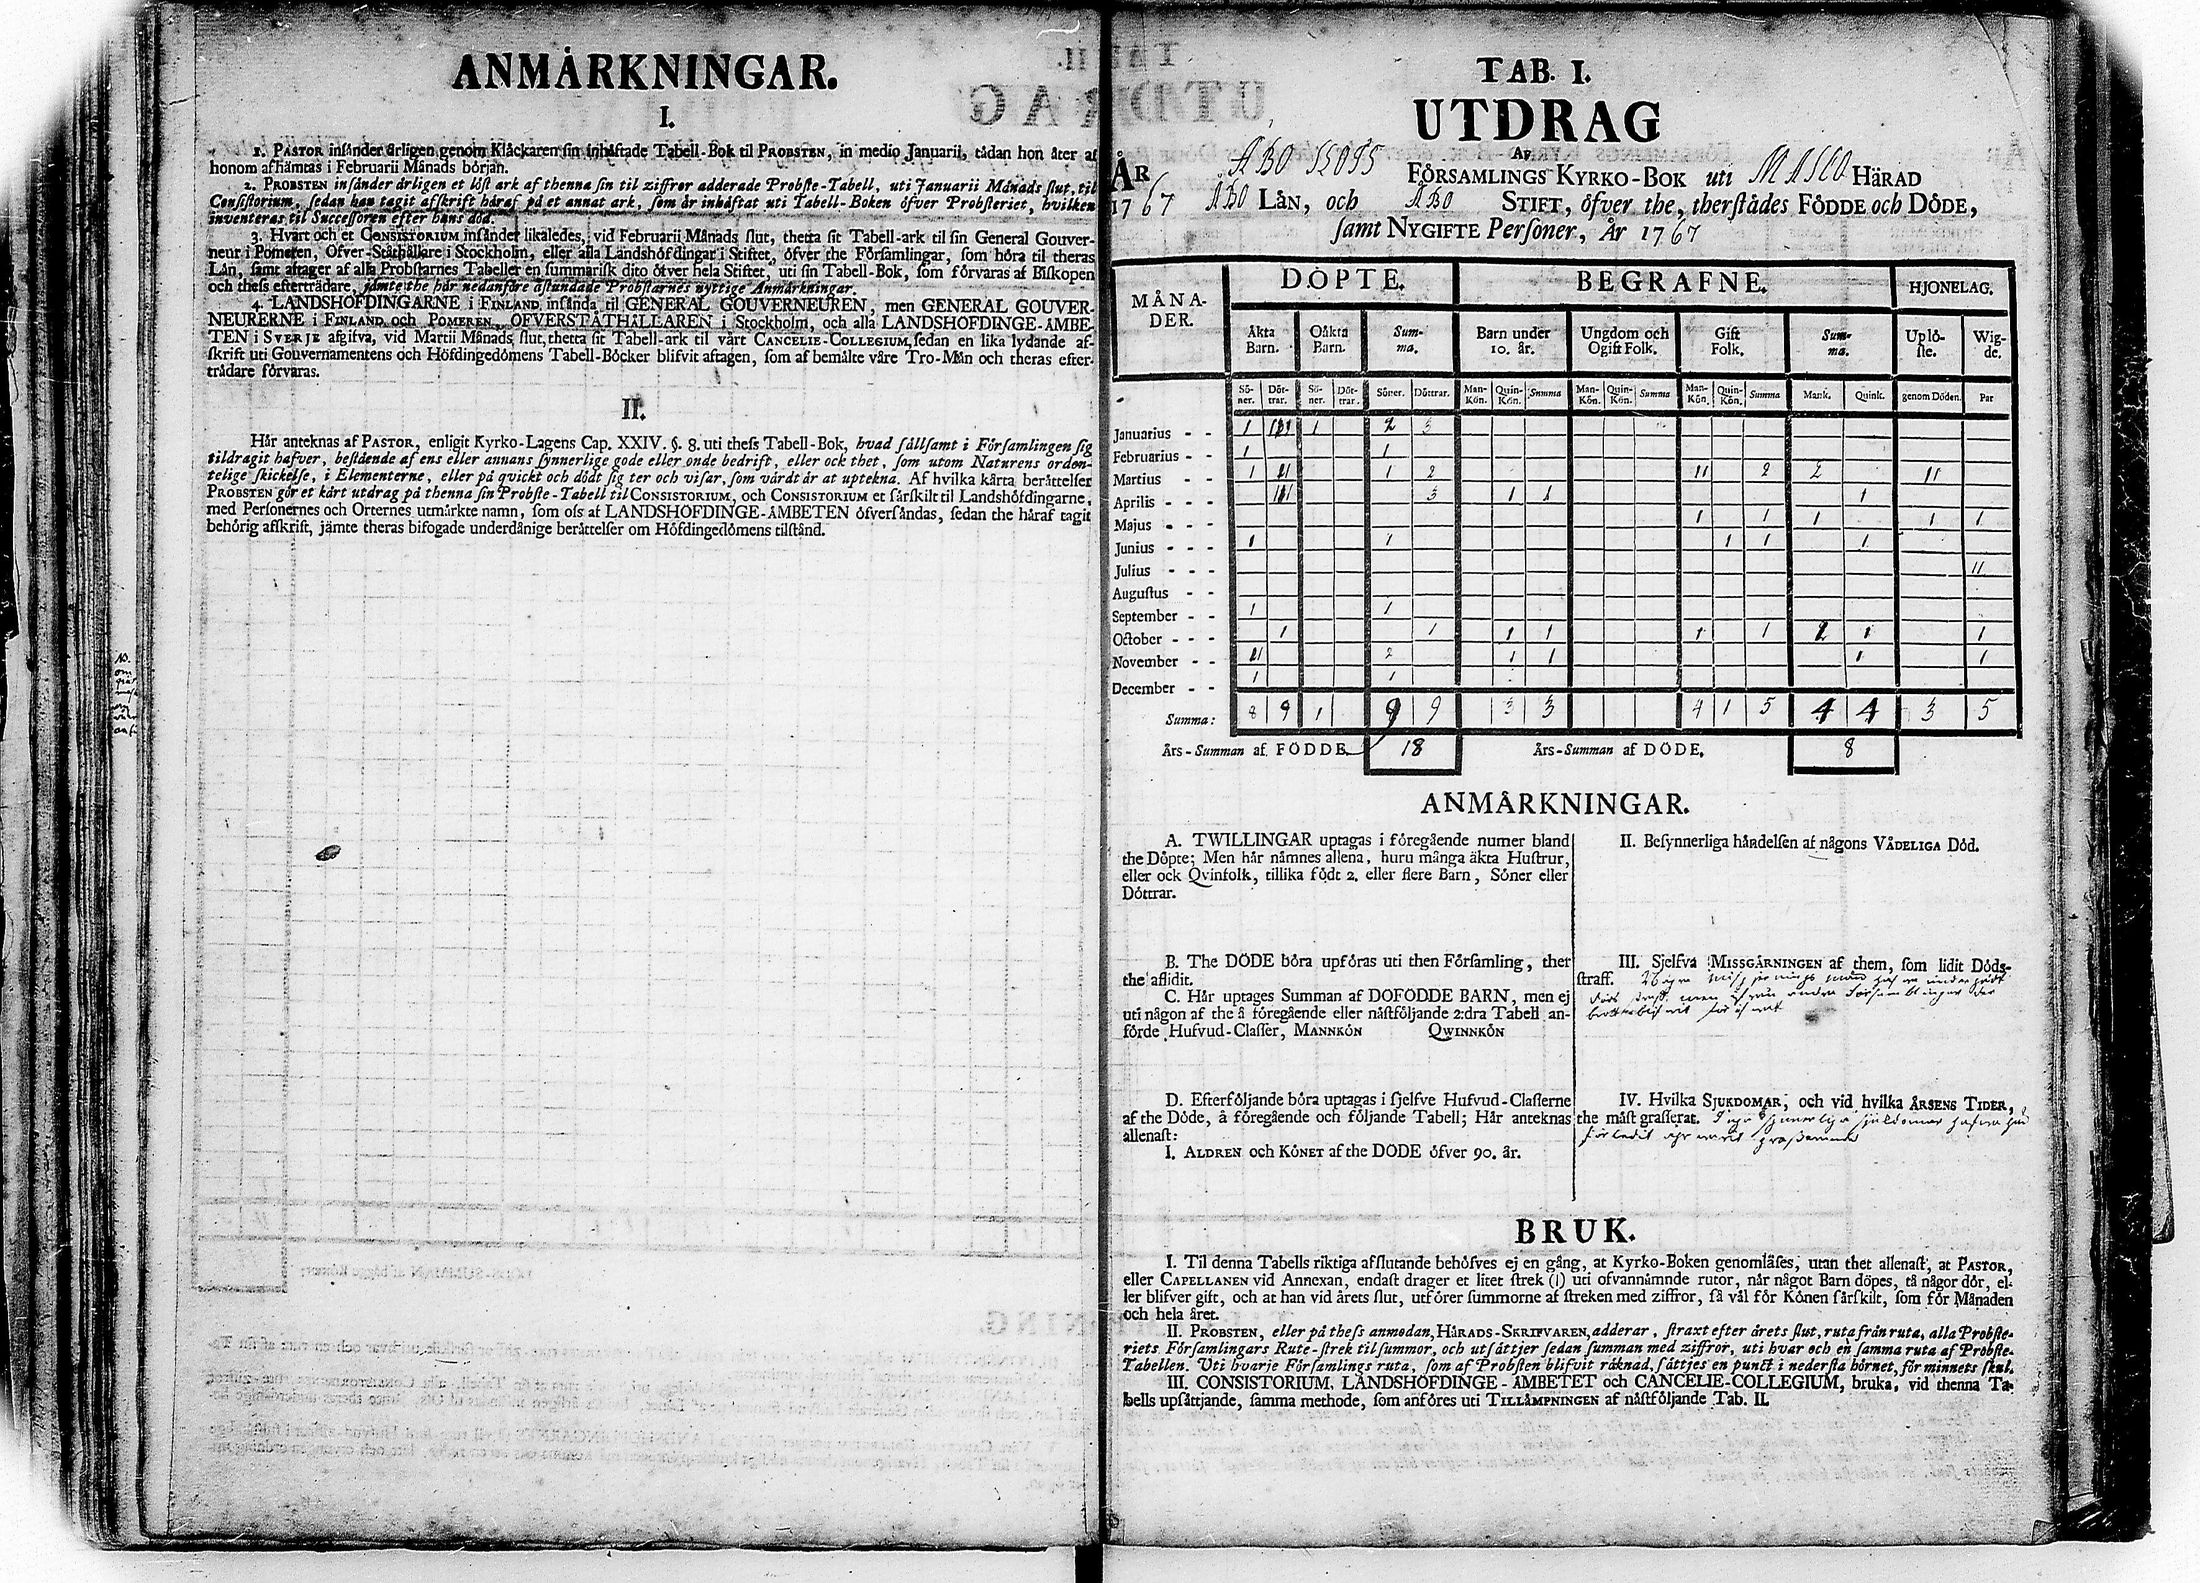 ANMÅRKNINGAR.
I.
1. PASTOR insånder årligen genom Klåckaren sin inhåftade Tabell-Bok til PROBSTEN, in medio Januarii, tådan hon åter af
honom afhåmtas i Februarii Månads början.
2. PROBSTEN insånder årligen et löst ark af thenna sin til ziffror adderade Probste-Tabell, uti Januarii Månads slut, til
Consistorium, sedan han tagit afskrift håraf på et annat ark, som år inhåftat uti Tabell-Boken öfver Probsteriet, hvilken
inventeras til Successoren efter hans död.
3. Hvart och et CONSISTORIUM insånder likaledes, vid Februarii Månads slut, thetta sit Tabell-ark til sin General Gouver-
neur i Pomeren, Öfver-Ståthållare i Stockholm, eller alla Landshöfdingar i Stiftet, öfver the Församlingar, som höra til theras
Lån, samt aftager af alla Probstarnes Tabeller en summarisk dito öfver hela Stiftet, uti sin Tabell-Bok, som förvaras af Biskopen
och thess eftertrådare, jåmte the hår nedanföre åstundade Probstarnes nyttige Anmårkningar.
4. LANDSHÖFDINGARNE i FINLAND insånda til GENERAL GOUVERNEUREN, men GENERAL GOUVER-
NEURERNE i FINLAND och POMEREN, ÖFVERSTÅTHÅLLAREN i Stockholm, och alla LANDSHÖFDINGE-ÅMBE-
TEN i SVERJE afgifva, vid Martii Månads slut, thetta sit Tabell-ark til vårt CANCELIE-COLLEGIUM, sedan en lika lydande af-
skrift uti Gouvernamentens och Höfdingedömens Tabell-Böcker blifvit aftagen, som af bemålte våre Tro-Mån och theras efter-
trådare förvaras.
II.
Hår anteknas af PASTOR, enligit Kyrko-Lagens Cap. XXIV. §. 8. uti thess Tabell-Bok, hvad sållsamt i Församlingen sig
tildragit hafver, bestående af ens eller annans synnerlige gode eller onde bedrift, eller ock thet, som utom Naturens orden-
telige skickelse, i Elementerne, eller på qvickt och dödt sig ter och visar, som vårdt år at uptekna. Af hvilka kårta beråttelser
PROBSTEN gör et kårt utdrag på thenna sin Probste-Tabell til CONSISTORIUM, och CONSISTORIUM et sårskilt til Landshöfdingarne,
med Personernes och Orternes utmårkte namn, som oss af LANDSHÖFDINGE-ÅMBETEN öfversåndas, sedan the håraf tagit
behörig afskrift, jåmte theras bifogade underdånige beråttelser om Höfdingedömens tilstånd.
TAB. I.
UTDRAG
AF
ÅR ÅBO FÖRSAMLINGS KYRKO-BOK uti MASCO HÅRAD
1767 ÅBO LÅN, och ÅBO STIFT, öfver the, therstådes FÖDDE och DÖDE,
samt NYGIFTE Personer, År 1767
MÅNA-DER. DÖPTE. BEGRAFNE. HJONELAG.
Åkta Barn. Oåkta Barn. Sum-ma. Barn under 10. år. Ungdom och Ogift Folk. Gift Folk. Sum-ma. Uplö-ste. Wig-de.
Sö-ner. Döt-trar. Sö-ner. Döt-trar. Söner. Döttrar. Man-Kön. Quin-Kön. Summa Man-Kön. Quin-Kön. Summa Man-Kön. Quin-Kön. Summa Mank. Quink. genom Döden. Par
Januarius - - 1 111 1 2 3
Februarius - - 1 1
Martius - - 1 11 1 2 11 2 2 11
Aprilis - - - 111 3 1 1 1
Majus - - - 1 1 1 1 1
Junius - - - 1 1 1 1 1
Julius - - - 11
Augustus - -
September - - 1 1
October - - - 1 1 1 1 1 1 2 1 1
November - - 11 2 1 1 1 1
December - - 1 1
Summa: 8 9 1 9 9 3 3 4 1 5 4 4 3 5
Års-Summan af FÖDDE 18 Års-Summan af DÖDE. 8
ANMÅRKNINGAR.
A. TWILLINGAR uptagas i föregående numer bland
the Döpte; Men hår nåmnes allena, huru många åkta Hustrur,
eller ock Qvinfolk, tillika födt 2. eller flere Barn, Söner eller
Döttrar.
B. The DÖDE böra upföras uti then Församling, ther
the aflidit.
C. Hår uptages Summan af DÖFÖDDE BARN, men ej
uti någon af the å föregående eller nåstföljande 2:dra Tabell an-
förde Hufvud-Classer, MANNKÖN QWINNKÖN
D. Efterföljande böra uptagas i sjelfve Hufvud-Classerne
af the Döde, å föregående och följande Tabell; Hår anteknas
allenast:
I. ÅLDREN och KÖNET af the DÖDE öfver 90. år.
II. Besynnerliga håndelsen af någons VÅDELIGA Död.
III. Sjelfva MISSGÅRNINGEN af them, som lidit Döds-
straff.
IV. Hvilka SJUKDOMAR, och vid hvilka ÅRSENS TIDER,
the måst grasserat.
BRUK.
I. Til denna Tabells riktiga afslutande behöfves ej en gång, at Kyrko-Boken genomlåses, utan thet allenast, at PASTOR,
eller CAPELLANEN vid Annexan, endast drager et litet strek (1) uti ofvannåmnde rutor, når något Barn döpes, tå någor dör, el-
ler blifver gift, och at han vid årets slut, utförer summorne af streken med ziffror, så vål för Könen sårskilt, som för Månaden
och hela året.
II. PROBSTEN, eller på thess anmodan, HÅRADS-SKRIFVAREN, adderar, straxt efter årets slut, ruta från ruta, alla Probste-
riets Församlingars Rute-strek til summor, och utsåttjer sedan summan med ziffror, uti hvar och en samma ruta af Probste-
Tabellen. Uti hvarje Församlings ruta, som af Probsten blifvit råknad, såttjes en punct i nedersta hörnet, för minnets skul.
III. CONSISTORIUM, LANDSHÖFDINGE-ÅMBETET och CANCELIE-COLLEGIUM, bruka, vid thenna Ta-
bells upsåttjande, samma methode, som anföres uti TILLÅMPNINGEN af nåstföljande Tab. II.